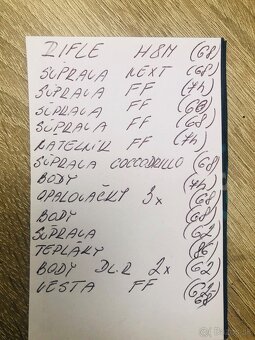 RIFLE H&M (68)
SÚPRAVA NEXT (68)
SÚPRAVA FF (74)
SÚPRAVA FF (68)
SÚPRAVA FF (68)
LATELNÍK FF (74)
SÚPRAVA COCCODRILLO (68)
BODY (74)
OPALOVAČKY 3x (68)
BODY (68)
SÚPRAVA (62)
TEPLÁKY (86)
BODY DLR 2x (62)
VESTA FF (62)
68